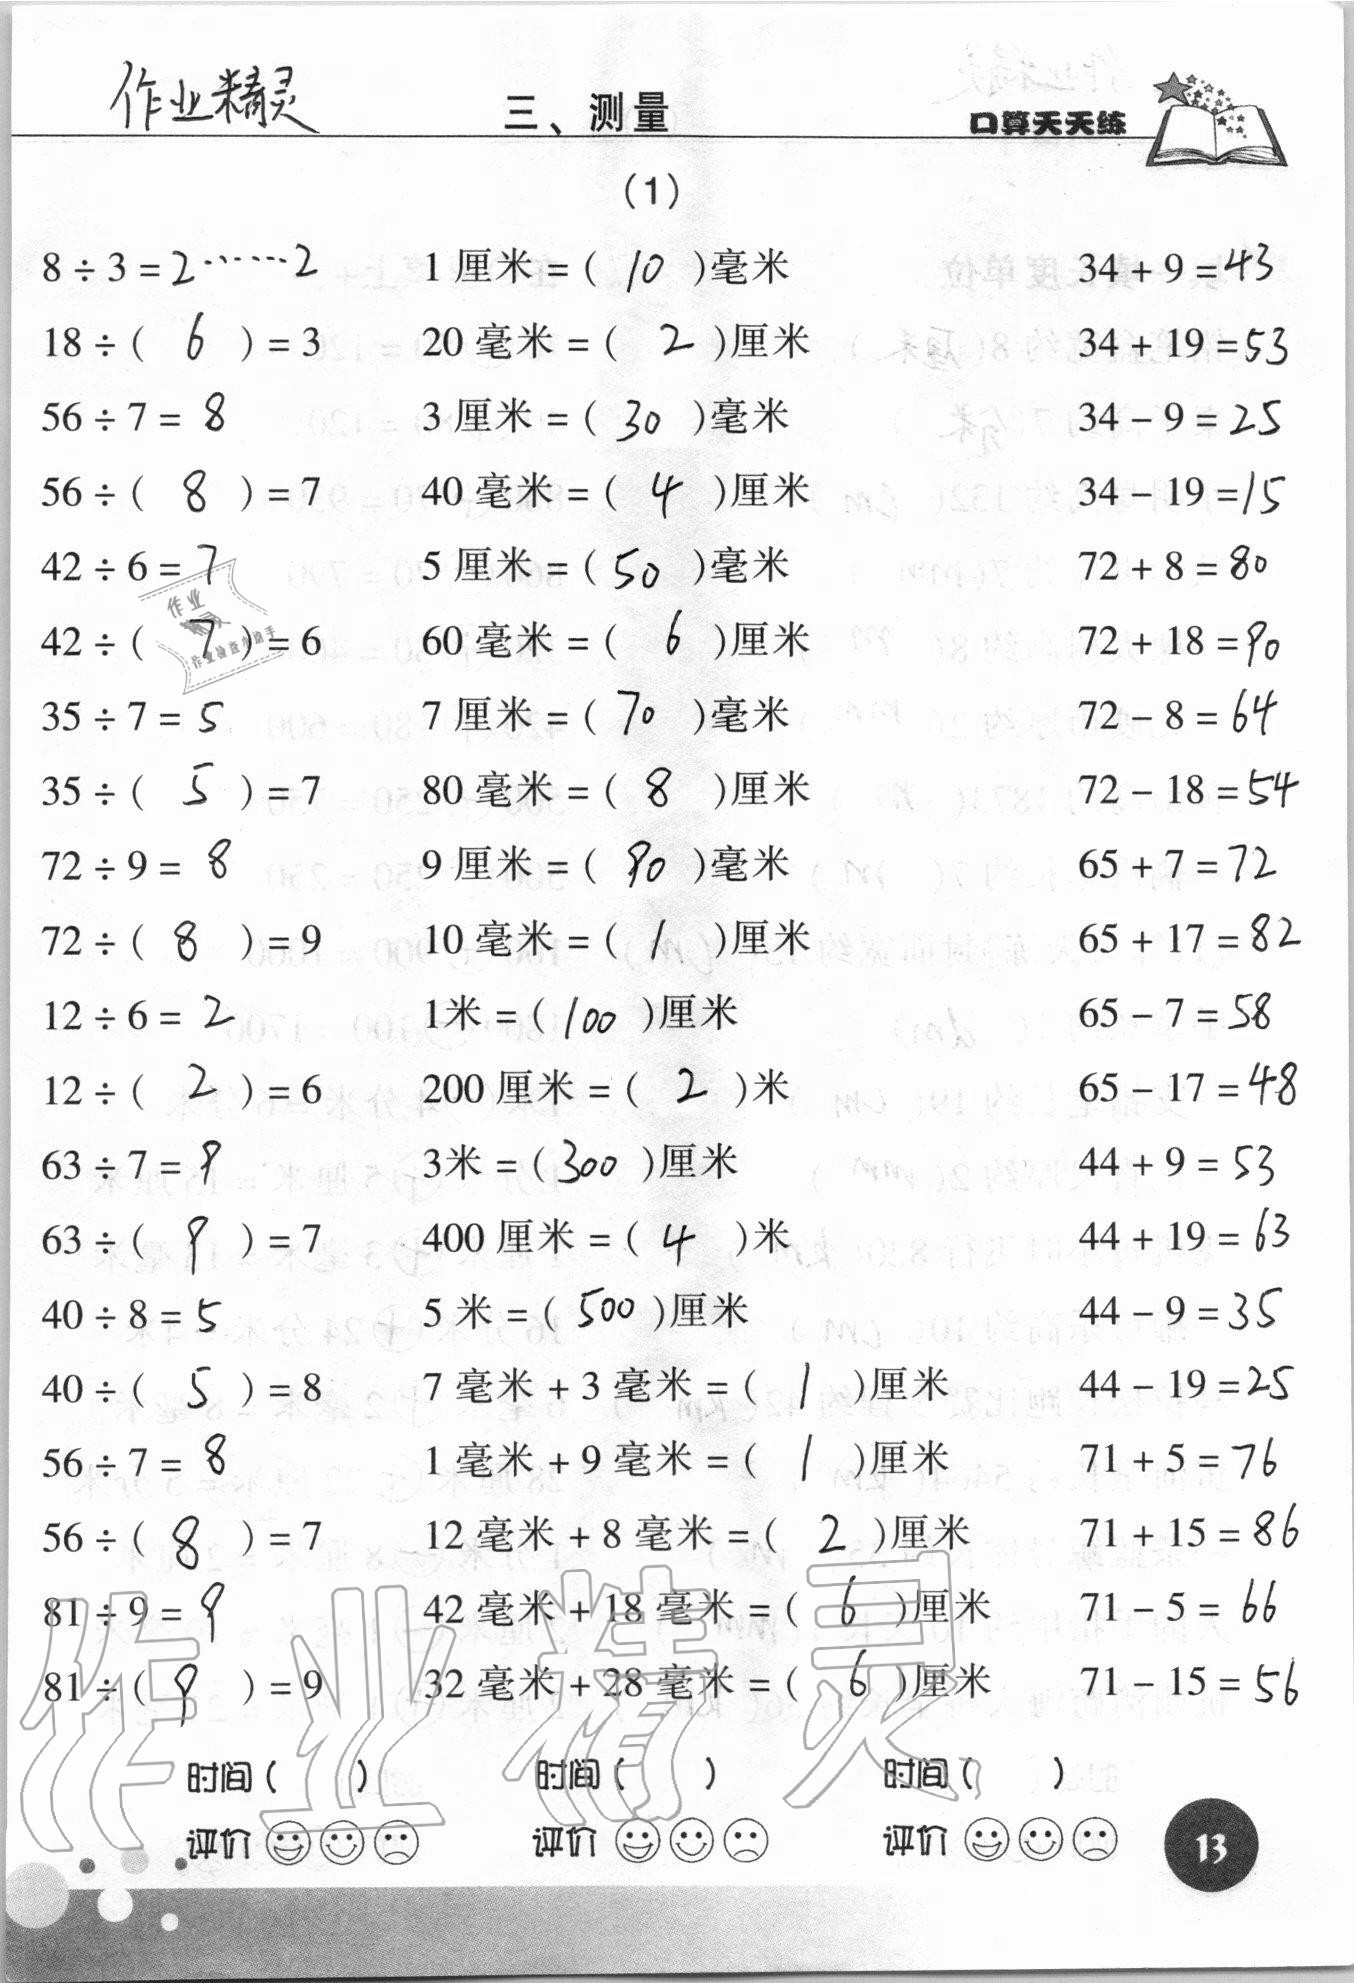 作业精灵 三、测量 口算天天练
(1)
8÷3=2……2 1厘米=( 10 )毫米 34+9=43
18÷( 6 )=3 20毫米=( 2 )厘米 34+19=53
56÷7=8 3厘米=( 30 )毫米 34-9=25
56÷( 8 )=7 40毫米=( 4 )厘米 34-19=15
42÷6=7 5厘米=( 50 )毫米 72+8=80
42÷( 7 )=6 60毫米=( 6 )厘米 72+18=90
35÷7=5 7厘米=( 70 )毫米 72-8=64
35÷( 5 )=7 80毫米=( 8 )厘米 72-18=54
72÷9=8 9厘米=( 90 )毫米 65+7=72
72÷( 8 )=9 10毫米=( 1 )厘米 65+17=82
12÷6=2 1米=( 100 )厘米 65-7=58
12÷( 2 )=6 200厘米=( 2 )米 65-17=48
63÷7=9 3米=( 300 )厘米 44+9=53
63÷( 9 )=7 400厘米=( 4 )米 44+19=63
40÷8=5 5米=( 500 )厘米 44-9=35
40÷( 5 )=8 7毫米+3毫米=( 1 )厘米 44-19=25
56÷7=8 1毫米+9毫米=( 1 )厘米 71+5=76
56÷( 8 )=7 12毫米+8毫米=( 2 )厘米 71+15=86
81÷9=9 42毫米+18毫米=( 6 )厘米 71-5=66
81÷( 9 )=9 32毫米+28毫米=( 6 )厘米 71-15=56
作业精灵
时间( ) 时间( ) 时间( )
评价 评价 评价
13